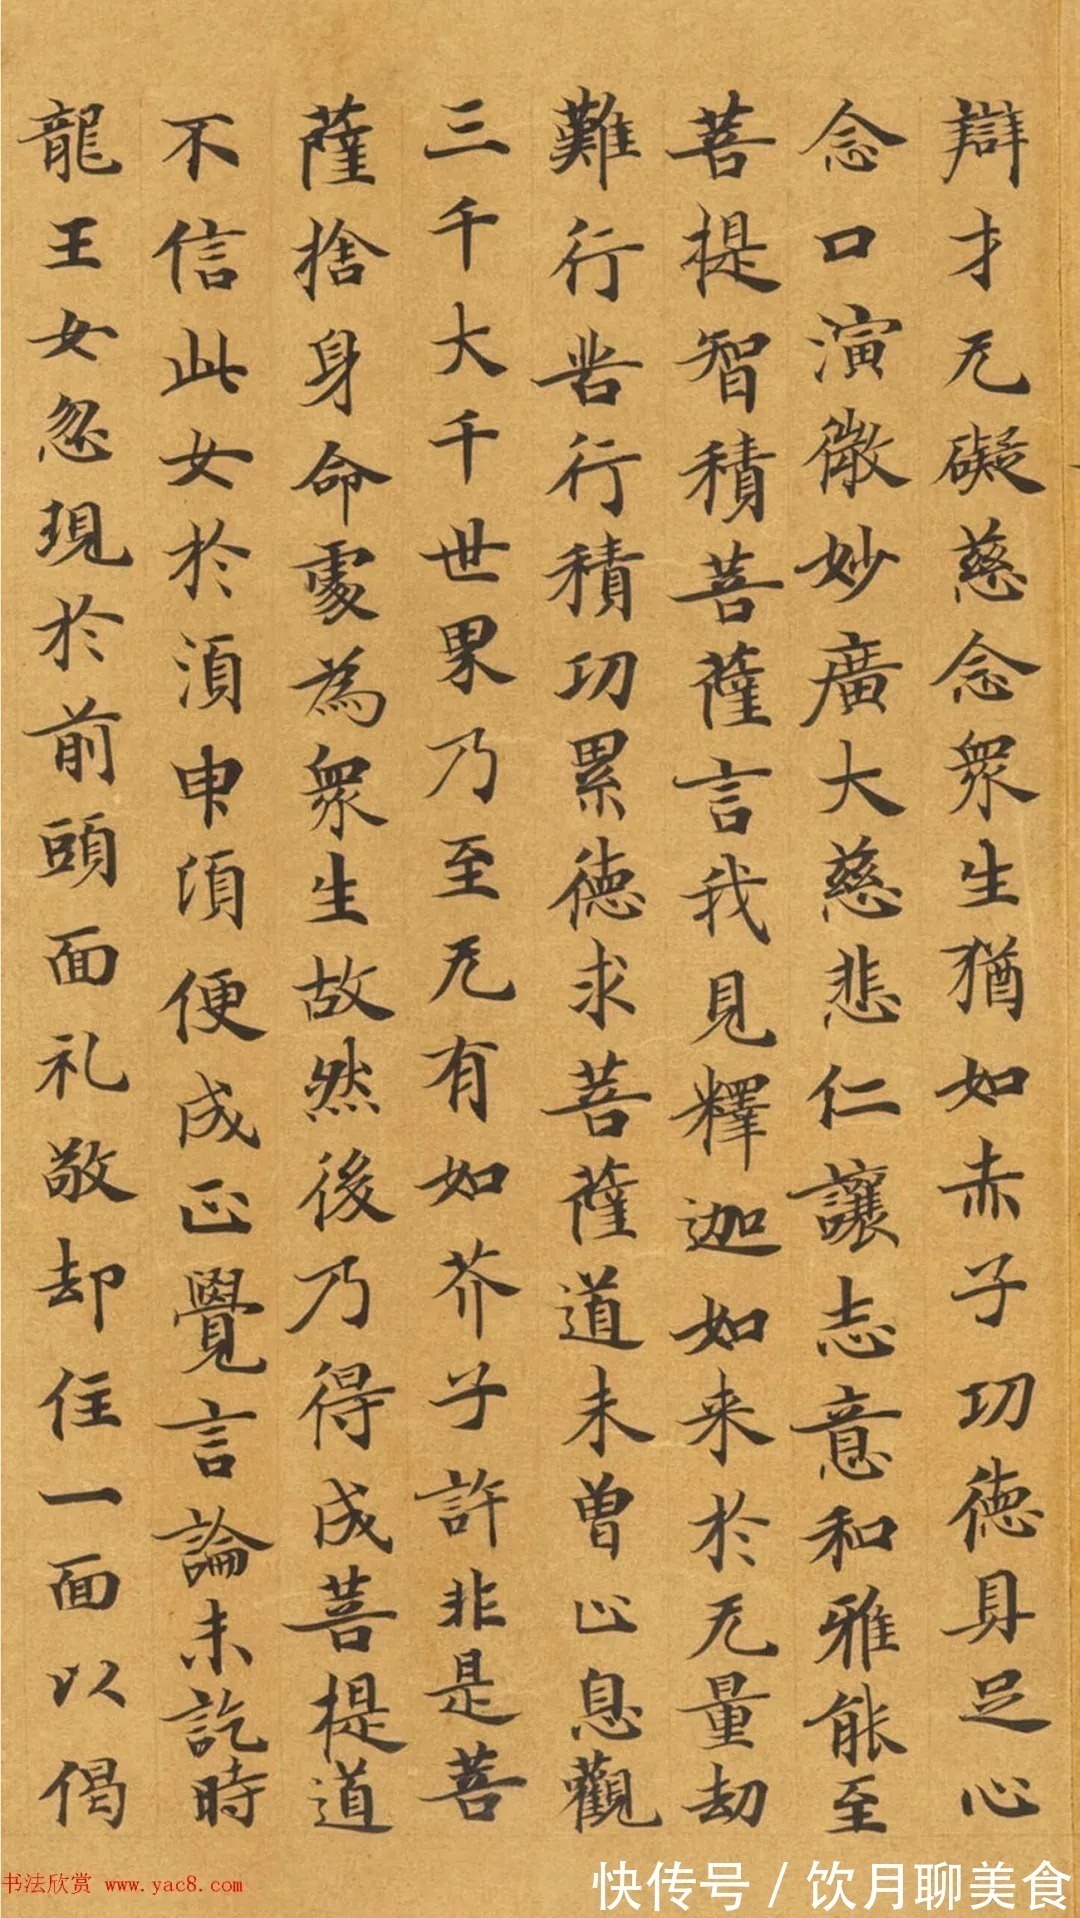 辯才无礙慈念衆生猶如赤子功德具足心
念口演微妙廣大慈悲仁讓志意和雅能至
菩提智積菩薩言我見釋迦如来於无量劫
難行苦行積功累德求菩薩道未曾止息觀
三千大千世界乃至无有如芥子許非是菩
薩捨身命處為衆生故然後乃得成菩提道
不信此女於湏申湏便成正覺言論未訖時
龍王女忽現於前頭面礼敬却住一面以偈
书法欣赏 www.yac8.com
快传号/饮月聊美食